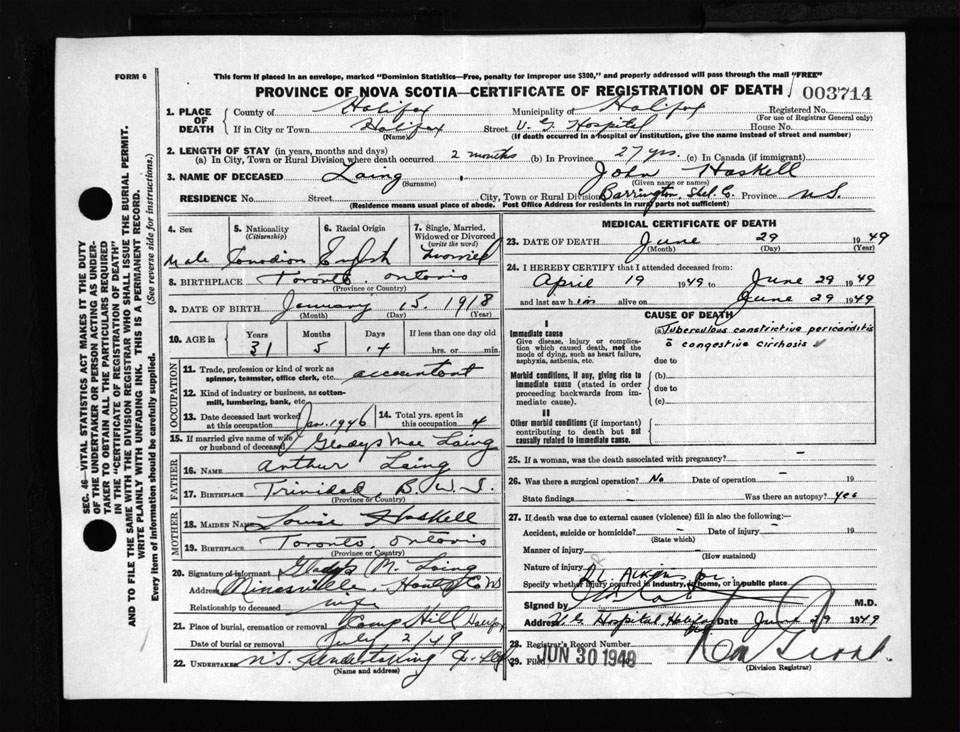 FORM 6
This form if placed in an envelope, marked "Dominion Statistics—Free, penalty for improper use $300," and properly addressed will pass through the mail "FREE"
PROVINCE OF NOVA SCOTIA—CERTIFICATE OF REGISTRATION OF DEATH
003714
1. PLACE OF DEATH
County of Halifax Municipality of Halifax Registered No.
(For use of Registrar General only)
If in City or Town Halifax Street V. G. Hospital House No.
(Name) (If death occurred in a hospital or institution, give the name instead of street and number)
2. LENGTH OF STAY (in years, months and days)
(a) In City, Town or Rural Division where death occurred 2 months (b) In Province 27 yrs. (c) In Canada (if immigrant)
3. NAME OF DECEASED Laing John Haskell
(Surname) (Given name or names)
RESIDENCE No. Street City, Town or Rural Division Barrington, Shel. Co. Province N.S.
(Residence means usual place of abode. Post Office Address for residents in rural parts not sufficient)
SEC. 46—VITAL STATISTICS ACT MAKES IT THE DUTY
OF THE UNDERTAKER OR PERSON ACTING AS UNDER-
TAKER TO OBTAIN ALL THE PARTICULARS REQUIRED
IN THE "CERTIFICATE OF REGISTRATION OF DEATH"
AND TO FILE THE SAME WITH THE DIVISION REGISTRAR WHO SHALL ISSUE THE BURIAL PERMIT.
WRITE PLAINLY WITH UNFADING INK. THIS IS A PERMANENT RECORD.
Every item of information should be carefully supplied. (See reverse side for instructions.)
4. Sex 5. Nationality (Citizenship) 6. Racial Origin 7. Single, Married, Widowed or Divorced (write the word)
Male Canadian English Married
8. BIRTHPLACE Toronto, Ontario
(Province or Country)
9. DATE OF BIRTH January 15, 1918
(Month) (Day) (Year)
10. AGE in Years Months Days If less than one day old
31 5 14 hrs. or min.
OCCUPATION
11. Trade, profession or kind of work as spinner, teamster, office clerk, etc. accountant
12. Kind of industry or business, as cotton-mill, lumbering, bank, etc.
13. Date deceased last worked at this occupation Jan. 1946 14. Total yrs. spent in this occupation 4
15. If married give name of wife or husband of deceased Gladys Mae Laing
FATHER
16. NAME Arthur Laing
17. BIRTHPLACE Trinidad B.W.I.
(Province or Country)
MOTHER
18. MAIDEN NAME Louise Haskell
19. BIRTHPLACE Toronto, Ontario
(Province or Country)
20. Signature of informant Gladys M. Laing
Address Minesville, Hants Co NS
Relationship to deceased wife
21. Place of burial, cremation or removal Camp Hill Halifax
Date of burial or removal July 2/49
22. UNDERTAKER N.S. Undertaking
(Name and address)
MEDICAL CERTIFICATE OF DEATH
23. DATE OF DEATH June 29 1949
(Month) (Day)
24. I HEREBY CERTIFY that I attended deceased from:
April 19 1949 to June 29 1949
and last saw him alive on June 29 1949
CAUSE OF DEATH
I
Immediate cause
Give disease, injury or complication which caused death, not the mode of dying, such as heart failure, asphyxia, asthenia, etc.
(a) Tuberculous constrictive pericarditis
c̄ congestive cirrhosis
due to
Morbid conditions, if any, giving rise to immediate cause (stated in order proceeding backwards from immediate cause).
(b)
due to
(c)
II
Other morbid conditions (if important) contributing to death but not causally related to immediate cause.
25. If a woman, was the death associated with pregnancy?
26. Was there a surgical operation? No Date of operation 19
State findings – Was there an autopsy? yes
27. If death was due to external causes (violence) fill in also the following:—
Accident, suicide or homicide? – Date of injury – 19
(State which)
Manner of injury
(How sustained)
Nature of injury
Specify whether injury occurred in industry, home, or in public place
Dr Aiken for
Signed by M.D.
Address V. G. Hospital, Halifax Date June 29 1949
28. Registrar's Record Number
29. Filed JUN 30 1949
(Division Registrar)